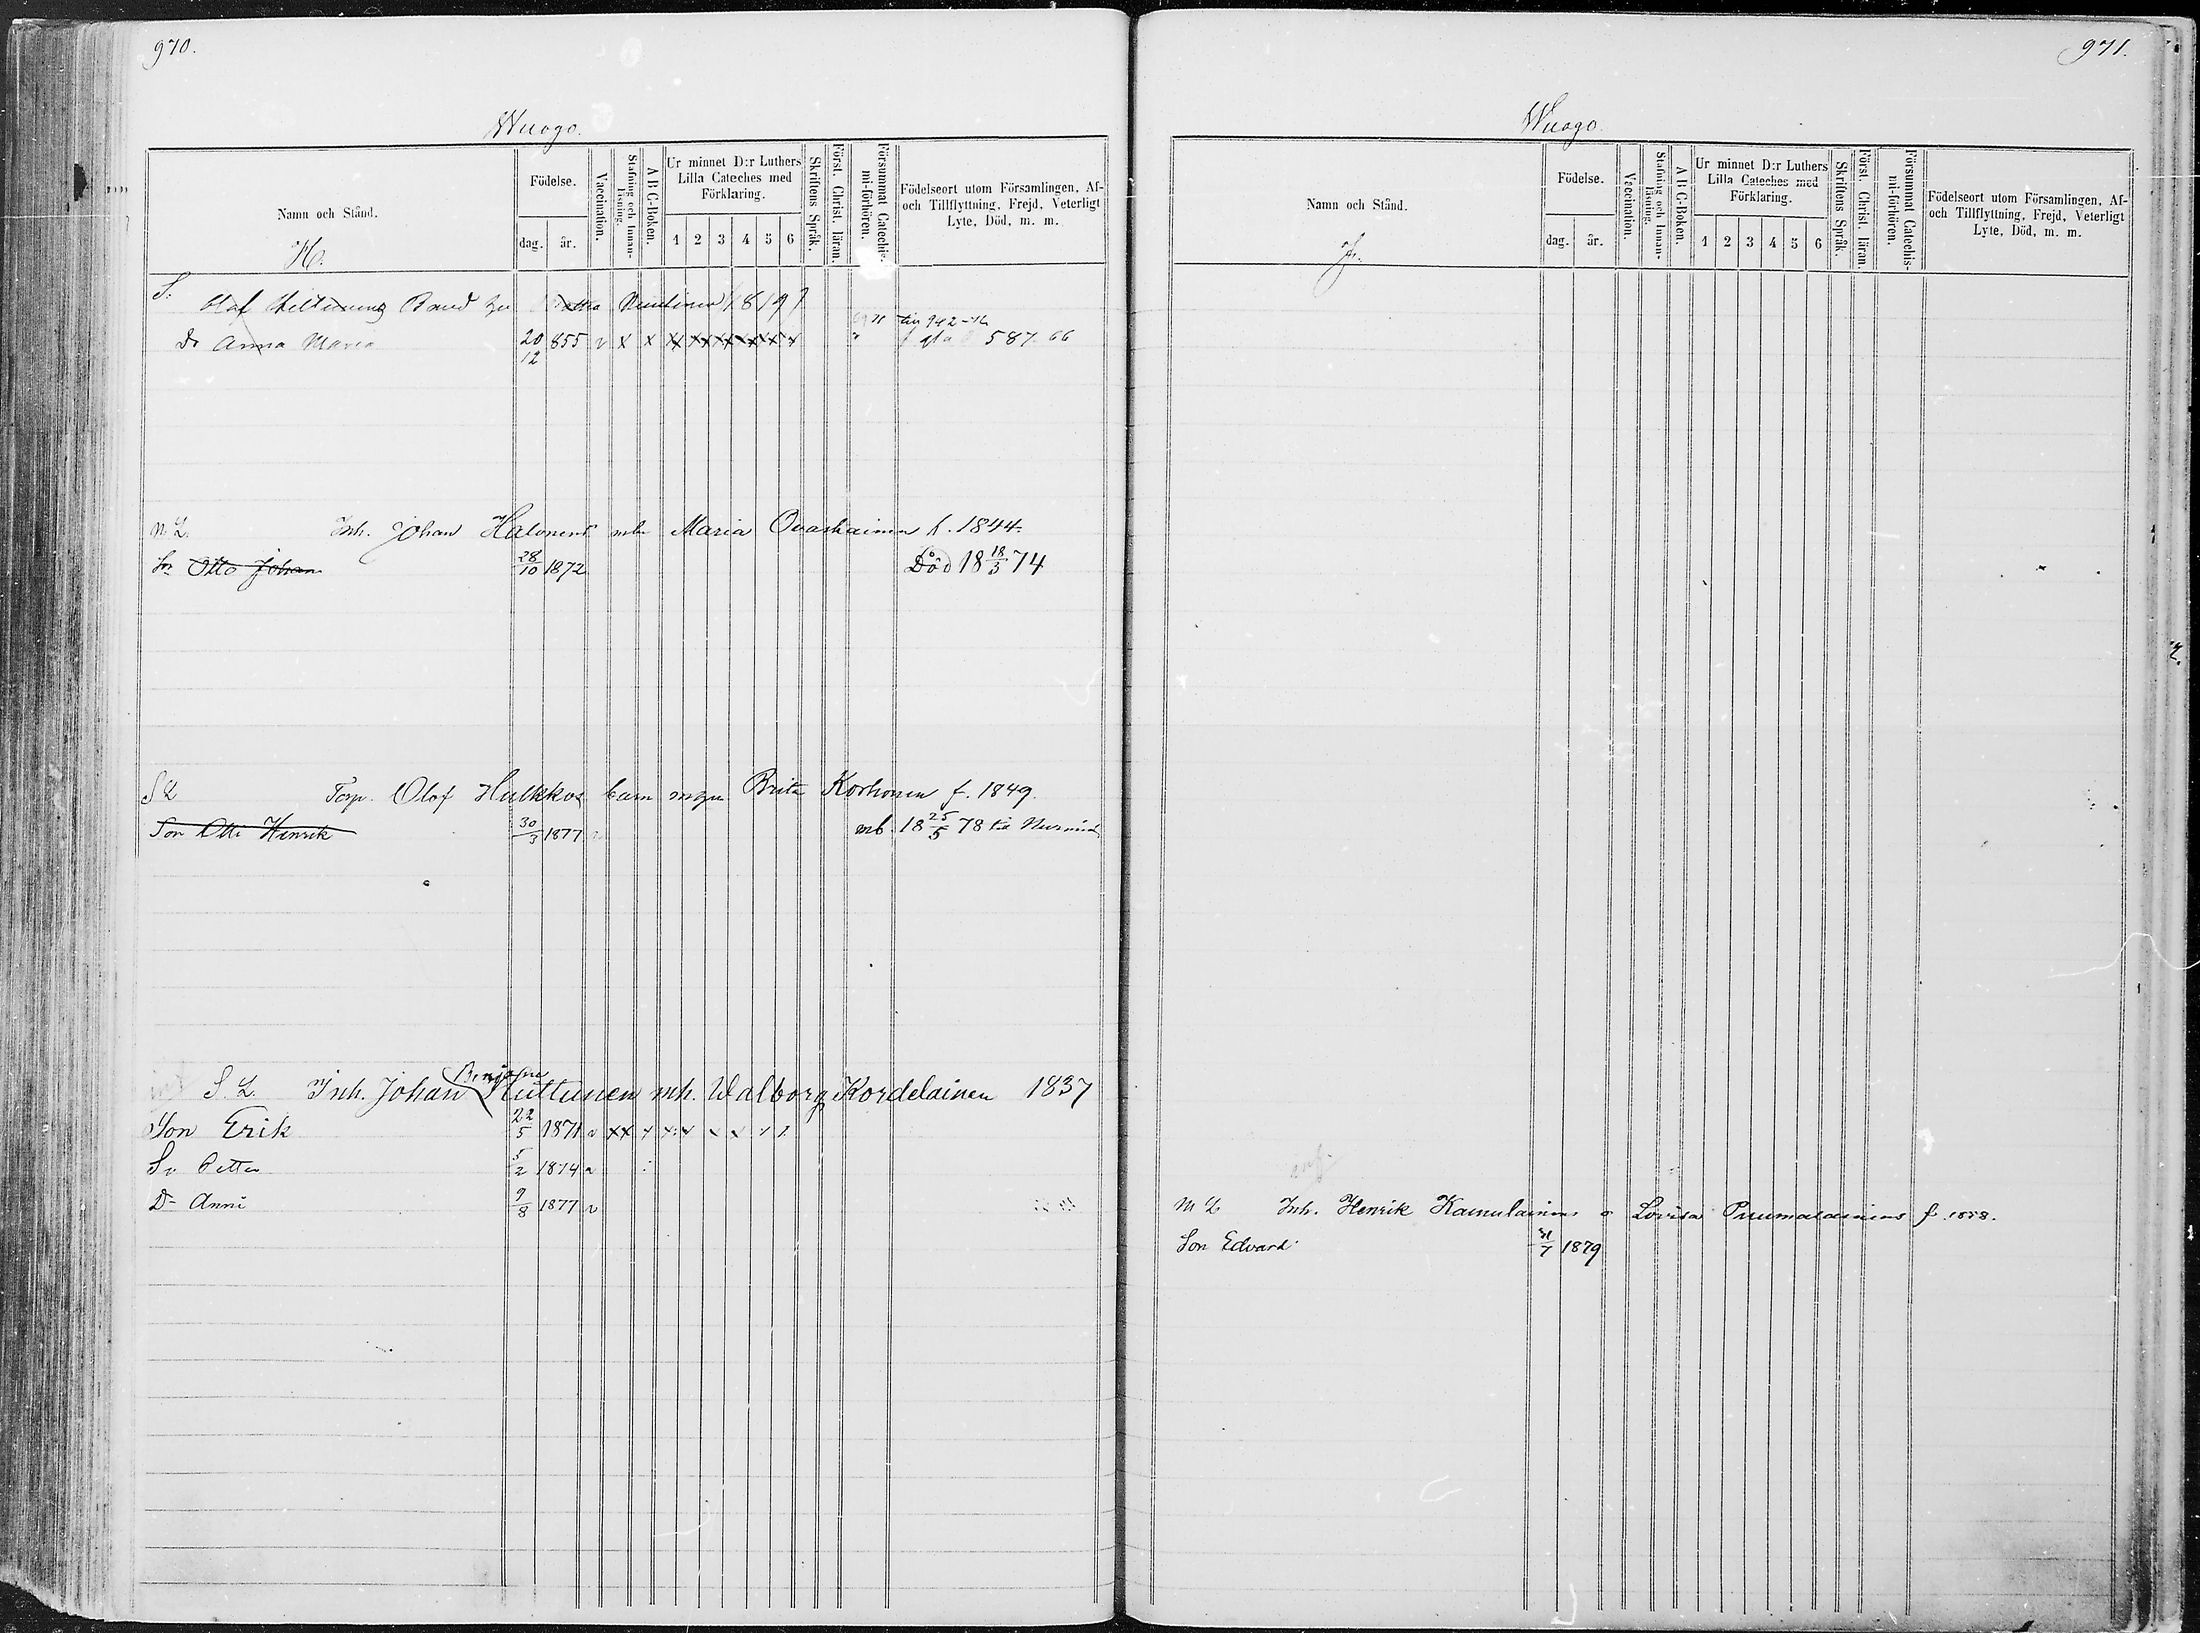 970.
Wuogo.
Namn och Stånd.
Födelse.
dag.
år.
Vaccination.
Stafning och Innan-läsning.
A B C-Boken.
Ur minnet D:r Luthers
Lilla Cateches med
Förklaring.
1 2 3 4 5 6
Skriftens Språk.
Först. Christ. läran.
Försummat Catechis-
mi-förhören.
Födelseort utom Församlingen, Af-
och Tillflyttning, Frejd, Veterligt
Lyte, Död, m. m.
H.
S.
Olof 1819
Dr Anna Maria 20/12 855 v x x x x x x x x 587. 66
M. L. Inh. Johan Halonens Maria Ovaskainen f. 1844.
Sn Otto Johan 28/10 1872 Död 18 18/5 74
S L Torp. Olof Hulkkos barn Brita Korhonen f. 1849.
Son Otti Henrik 30/3 1877 mb. 18 25/5 78 till Nurmis
Benjam
S. L. Inh. Johan Huttunen mh. Walborg Kordelainen 1837
Son Erik 22/5 1871 v x x
Sn Petter 5/2 1874 v
Dr Anni 9/8 1877 v
971.
Wuogo.
Namn och Stånd.
Födelse.
dag.
år.
Vaccination.
Stafning och Innan-läsning.
A B C-Boken.
Ur minnet D:r Luthers
Lilla Cateches med
Förklaring.
1 2 3 4 5 6
Skriftens Språk.
Först. Christ. läran.
Försummat Catechis-
mi-förhören.
Födelseort utom Församlingen, Af-
och Tillflyttning, Frejd, Veterligt
Lyte, Död, m. m.
M L Inh. Henrik Kainulainens o Lovisa Puumalainens f. 1858.
Son Edvard 31/7 1879